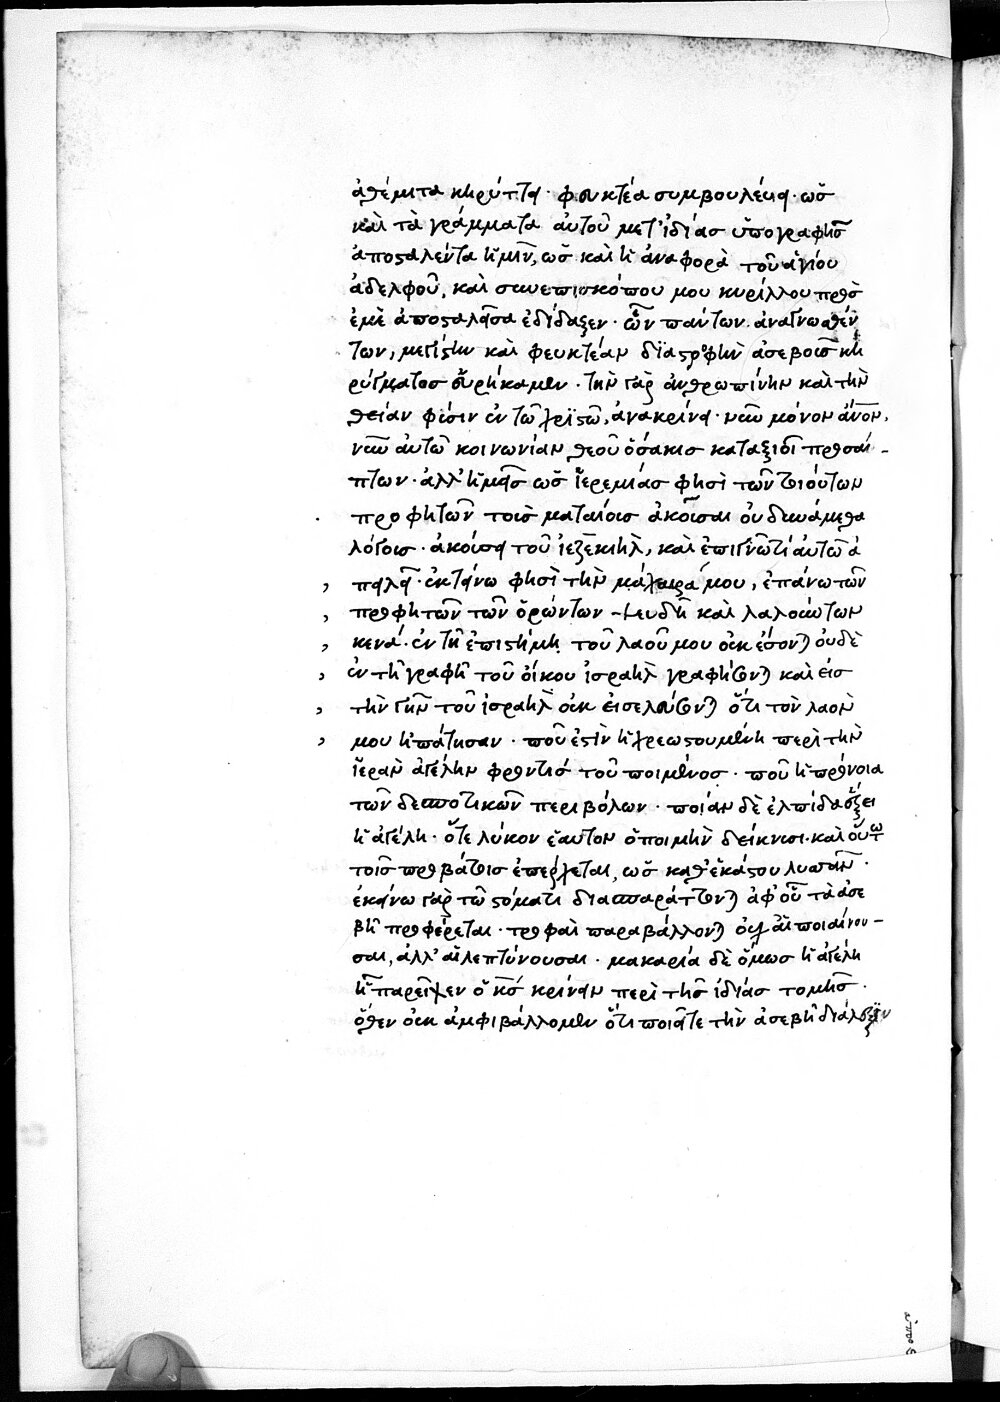 ἀθέμιτα κηρύττει· φευκτέα συμβουλεύει· ὡς
καὶ τὰ γράμματα αὐτοῦ μετ' ἰδίας ὑπογραφῆς
ἀποσταλέντα ἡμῖν, ὡς καὶ ἡ ἀναφορὰ τοῦ ἁγίου
ἀδελφοῦ, καὶ συνεπισκόπου μου κυρίλλου πρὸς
ἐμὲ ἀποσταλεῖσα ἐδίδαξεν· ὧν πάντων ἀναγνωσθέν
των, μεγίστην καὶ φευκτέαν διαστροφὴν ἀσεβοῦς κη
ρύγματος εὑρήκαμεν· τὴν γὰρ ἀνθρωπίνην καὶ τὴν
θείαν φύσιν ἐν τῷ χριστῷ, ἀνακρίνει· νῦν μόνον ἄνον,
νῦν αὐτῷ κοινωνίαν θεοῦ ὁσάκις καταξιοῖ προσά-
πτων· ἀλλ' ἡμεῖς ὡς ἱερεμίας φησὶ τῶν τοιούτων
προφητῶν τοῖς ματαίοις ἀκοῦσαι οὐ δυνάμεθα
λόγοις· ἀκούσει τοῦ ἰεζεκιὴλ, καὶ ἐπιγνώτω αὐτῷ ἀ
πειλεῖ· ἐκτείνω φησὶ τὴν μάχαιρά μου, ἐπάνω τῶν
προφητῶν τῶν ὁρώντων ψευδῆ καὶ λαλούντων
κενά· ἐν τῇ ἐπιστήμῃ τοῦ λαοῦ μου οὐκ ἔσονται οὐδὲ
ἐν τῇ γραφῇ τοῦ οἴκου ἰσραὴλ γραφήσονται καὶ εἰς
τὴν γῆν τοῦ ἰσραὴλ οὐκ εἰσελεύσονται ὅτι τὸν λαὸν
μου ἠπάτησαν· ποῦ ἐστὶν ἡ χρεωστουμένη περὶ τὴν
ἱερὰν ἀγέλην φροντὶς τοῦ ποιμένος· ποῦ ἡ πρόνοια
τῶν δεσποτικῶν περιβόλων· ποίαν δὲ ἐλπίδα ἕξει
ἡ ἀγέλη· ὅτε λύκον ἑαυτὸν ὁ ποιμὴν δείκνυσι· καὶ οὕτω
τοῖς προβάτοις ἐπέρχεται, ὡς καθ' ἑκάστου λυπεῖν·
ἐκείνω γὰρ τῷ στόματι διασπαράττονται ἀφ' οὗ τὰ ἀσε
βῆ προφέρεται· τροφαὶ παραβάλλονται οὐχ αἱ ποιαίνου-
σαι, ἀλλ' αἱ λεπτύνουσαι· μακαρία δὲ ὅμως ἡ ἀγέλη
ᾗ παρεῖχεν ὁ κς κρίνειν περὶ τῆς ἰδίας τομῆς·
ὅθεν οὐκ ἀμφιβάλλομεν ὅτι ποιεῖτε τὴν ἀσεβῆ διάλεξιν